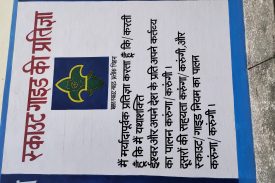 स्काउट गाइड की प्रतिज्ञा
मैं मर्यादापूर्वक प्रतिज्ञा करता हूँ कि/ करती
हूँ कि मैं यथाशक्ति
ईश्वर और अपने देश के प्रति अपने कर्तव्य
का पालन करुंगा/ करुंगी ।
दूसरों की सहायता करुंगा/ करुंगी और
स्काउट/ गाइड नियम का पालन
करुंगा/ करुंगी ।